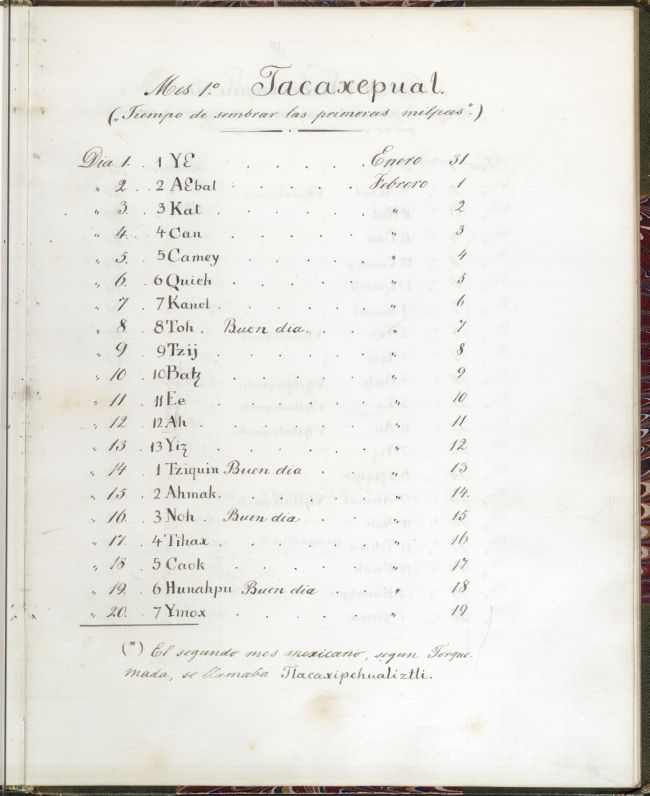 Mes 1.º Tacaxepual.
(„Tiempo de sembrar las primeras milpas“.)
Dia 1. . 1 YƐ . . . . . Enero 31.
„ 2. . 2 AƐbal . . . . Febrero 1
„ 3. . 3 Kat . . . . . „ 2
„ 4. . 4 Can . . . . . „ 3
„ 5. . 5 Camey . . . . „ 4
„ 6. . 6 Quieh . . . . „ 5
„ 7. . 7 Kanel . . . . . „ 6
„ 8. . 8 Toh . Buen dia . . „ 7
„ 9 . 9 Tzij . . . . . „ 8
„ 10 . 10 Batz . . . . . „ 9
„ 11 . 11 Ee . . . . . „ 10
„ 12 . 12 Ah . . . . . „ 11
„ 13 . 13 Yiz . . . . . „ 12
„ 14 . 1 Tziquin Buen dia . „ 13
„ 15 . 2 Ahmak . . . . „ 14
„ 16. . 3 Noh . Buen dia . . „ 15
„ 17. . 4 Tihax . . . . „ 16
„ 18 . 5 Caok . . . . . „ 17
„ 19. . 6 Hunahpu Buen dia . „ 18
„ 20. . 7 Ymox . . . . „ 19
(*) El segundo mes mexicano, segun Torque-
mada, se llamaba Tlacaxipehualiztli.